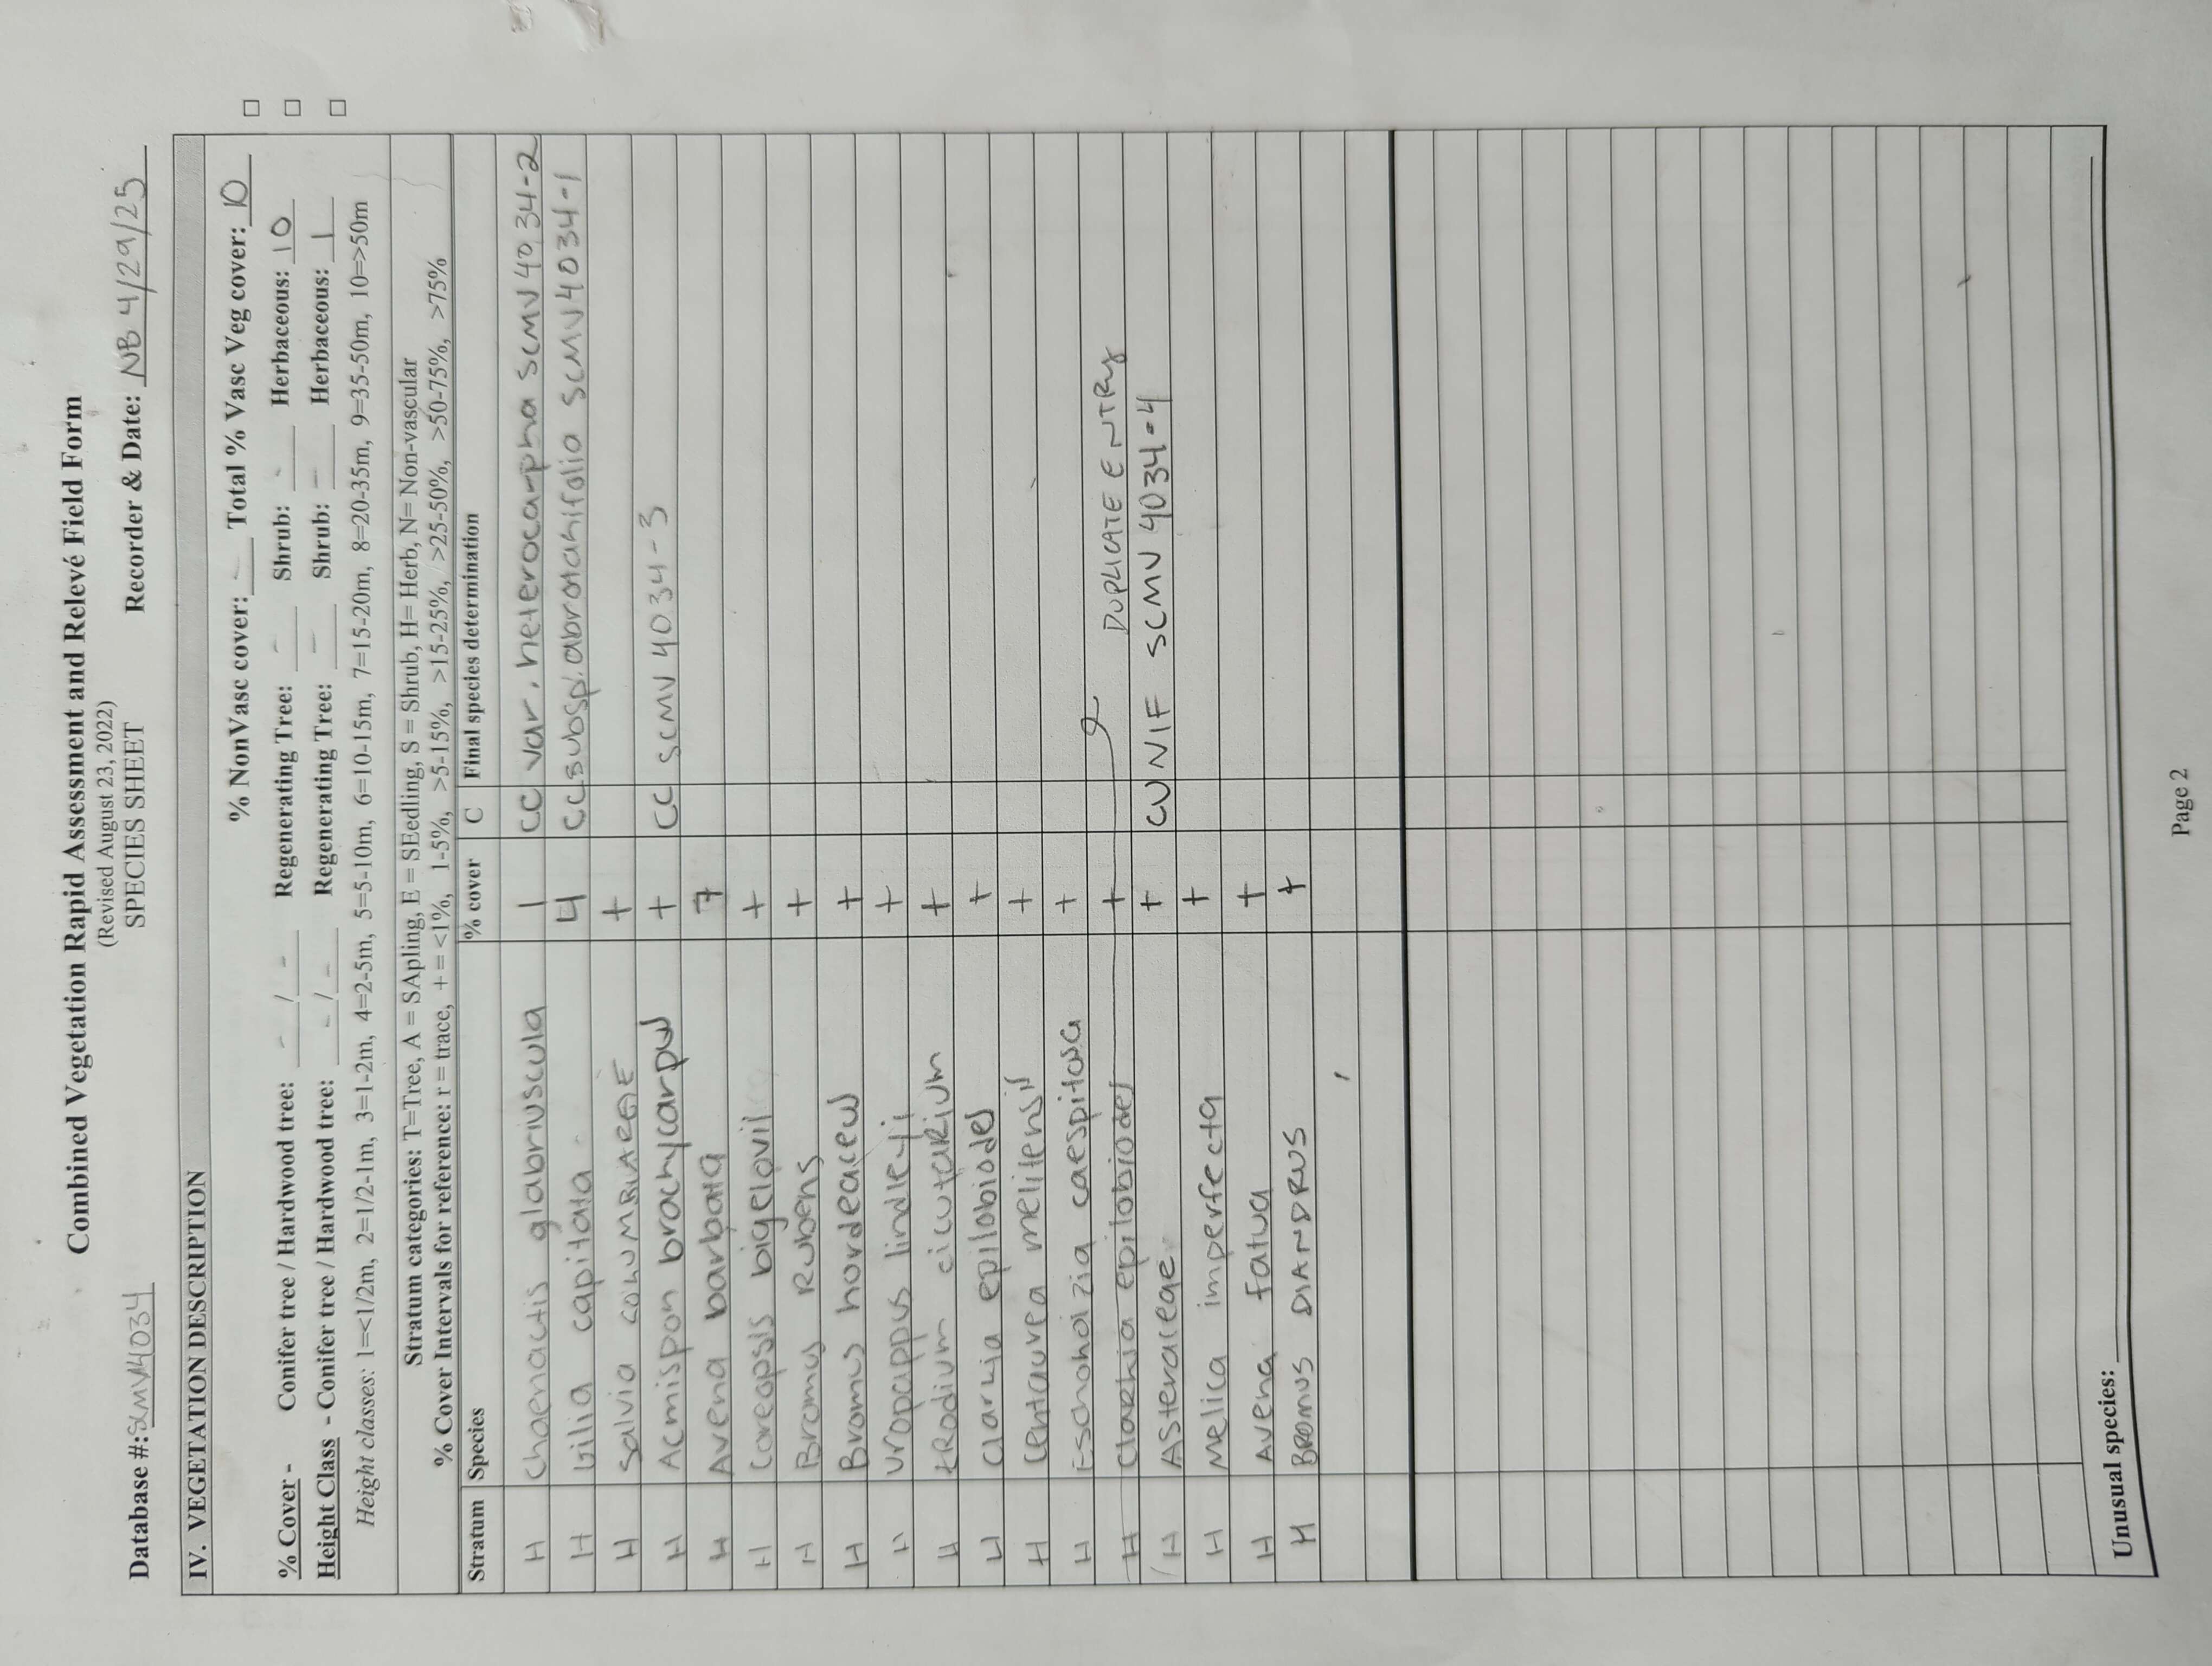 Combined Vegetation Rapid Assessment and Relevé Field Form
(Revised August 23, 2022)
SPECIES SHEET
Database #: SCMV4034 Recorder & Date: NB 4/29/25
IV. VEGETATION DESCRIPTION
% NonVasc cover: - Total % Vasc Veg cover: 10 □
% Cover - Conifer tree / Hardwood tree: - / - Regenerating Tree: - Shrub: - Herbaceous: 10 □
Height Class - Conifer tree / Hardwood tree: - / - Regenerating Tree: - Shrub: - Herbaceous: 1 □
Height classes: 1=<1/2m, 2=1/2-1m, 3=1-2m, 4=2-5m, 5=5-10m, 6=10-15m, 7=15-20m, 8=20-35m, 9=35-50m, 10=>50m
Stratum categories: T=Tree, A = SApling, E = SEedling, S = Shrub, H= Herb, N= Non-vascular
% Cover Intervals for reference: r = trace, + = <1%, 1-5%, >5-15%, >15-25%, >25-50%, >50-75%, >75%
Stratum Species % cover C Final species determination
H Chaenactis glabriuscula 1 CC var. heterocarpha SCMV4034-2
H Gilia capitata 4 CC subsp. abrotanifolia SCMV4034-1
H Salvia COLUMBIAEAE +
H Acmispon brachycarpus + CC SCMV 4034-3
H Avena barbata 7
H Coreopsis bigelovii +
H Bromus Rubens +
H Bromus hordeaceus +
H Uropappus lindleyi +
H ERodium cicutaRium +
H Clarkia epilobiodes +
H Centaurea melitensis +
H Eschoholzia caespitosa +
H Clarkia epilobiodes + DUPLICATE ENTRY
H Asteraceae + C UNIF SCMV 4034-4
H Melica imperfecta +
H Avena fatua +
H BROMUS DIANDRUS +
Unusual species:
Page 2